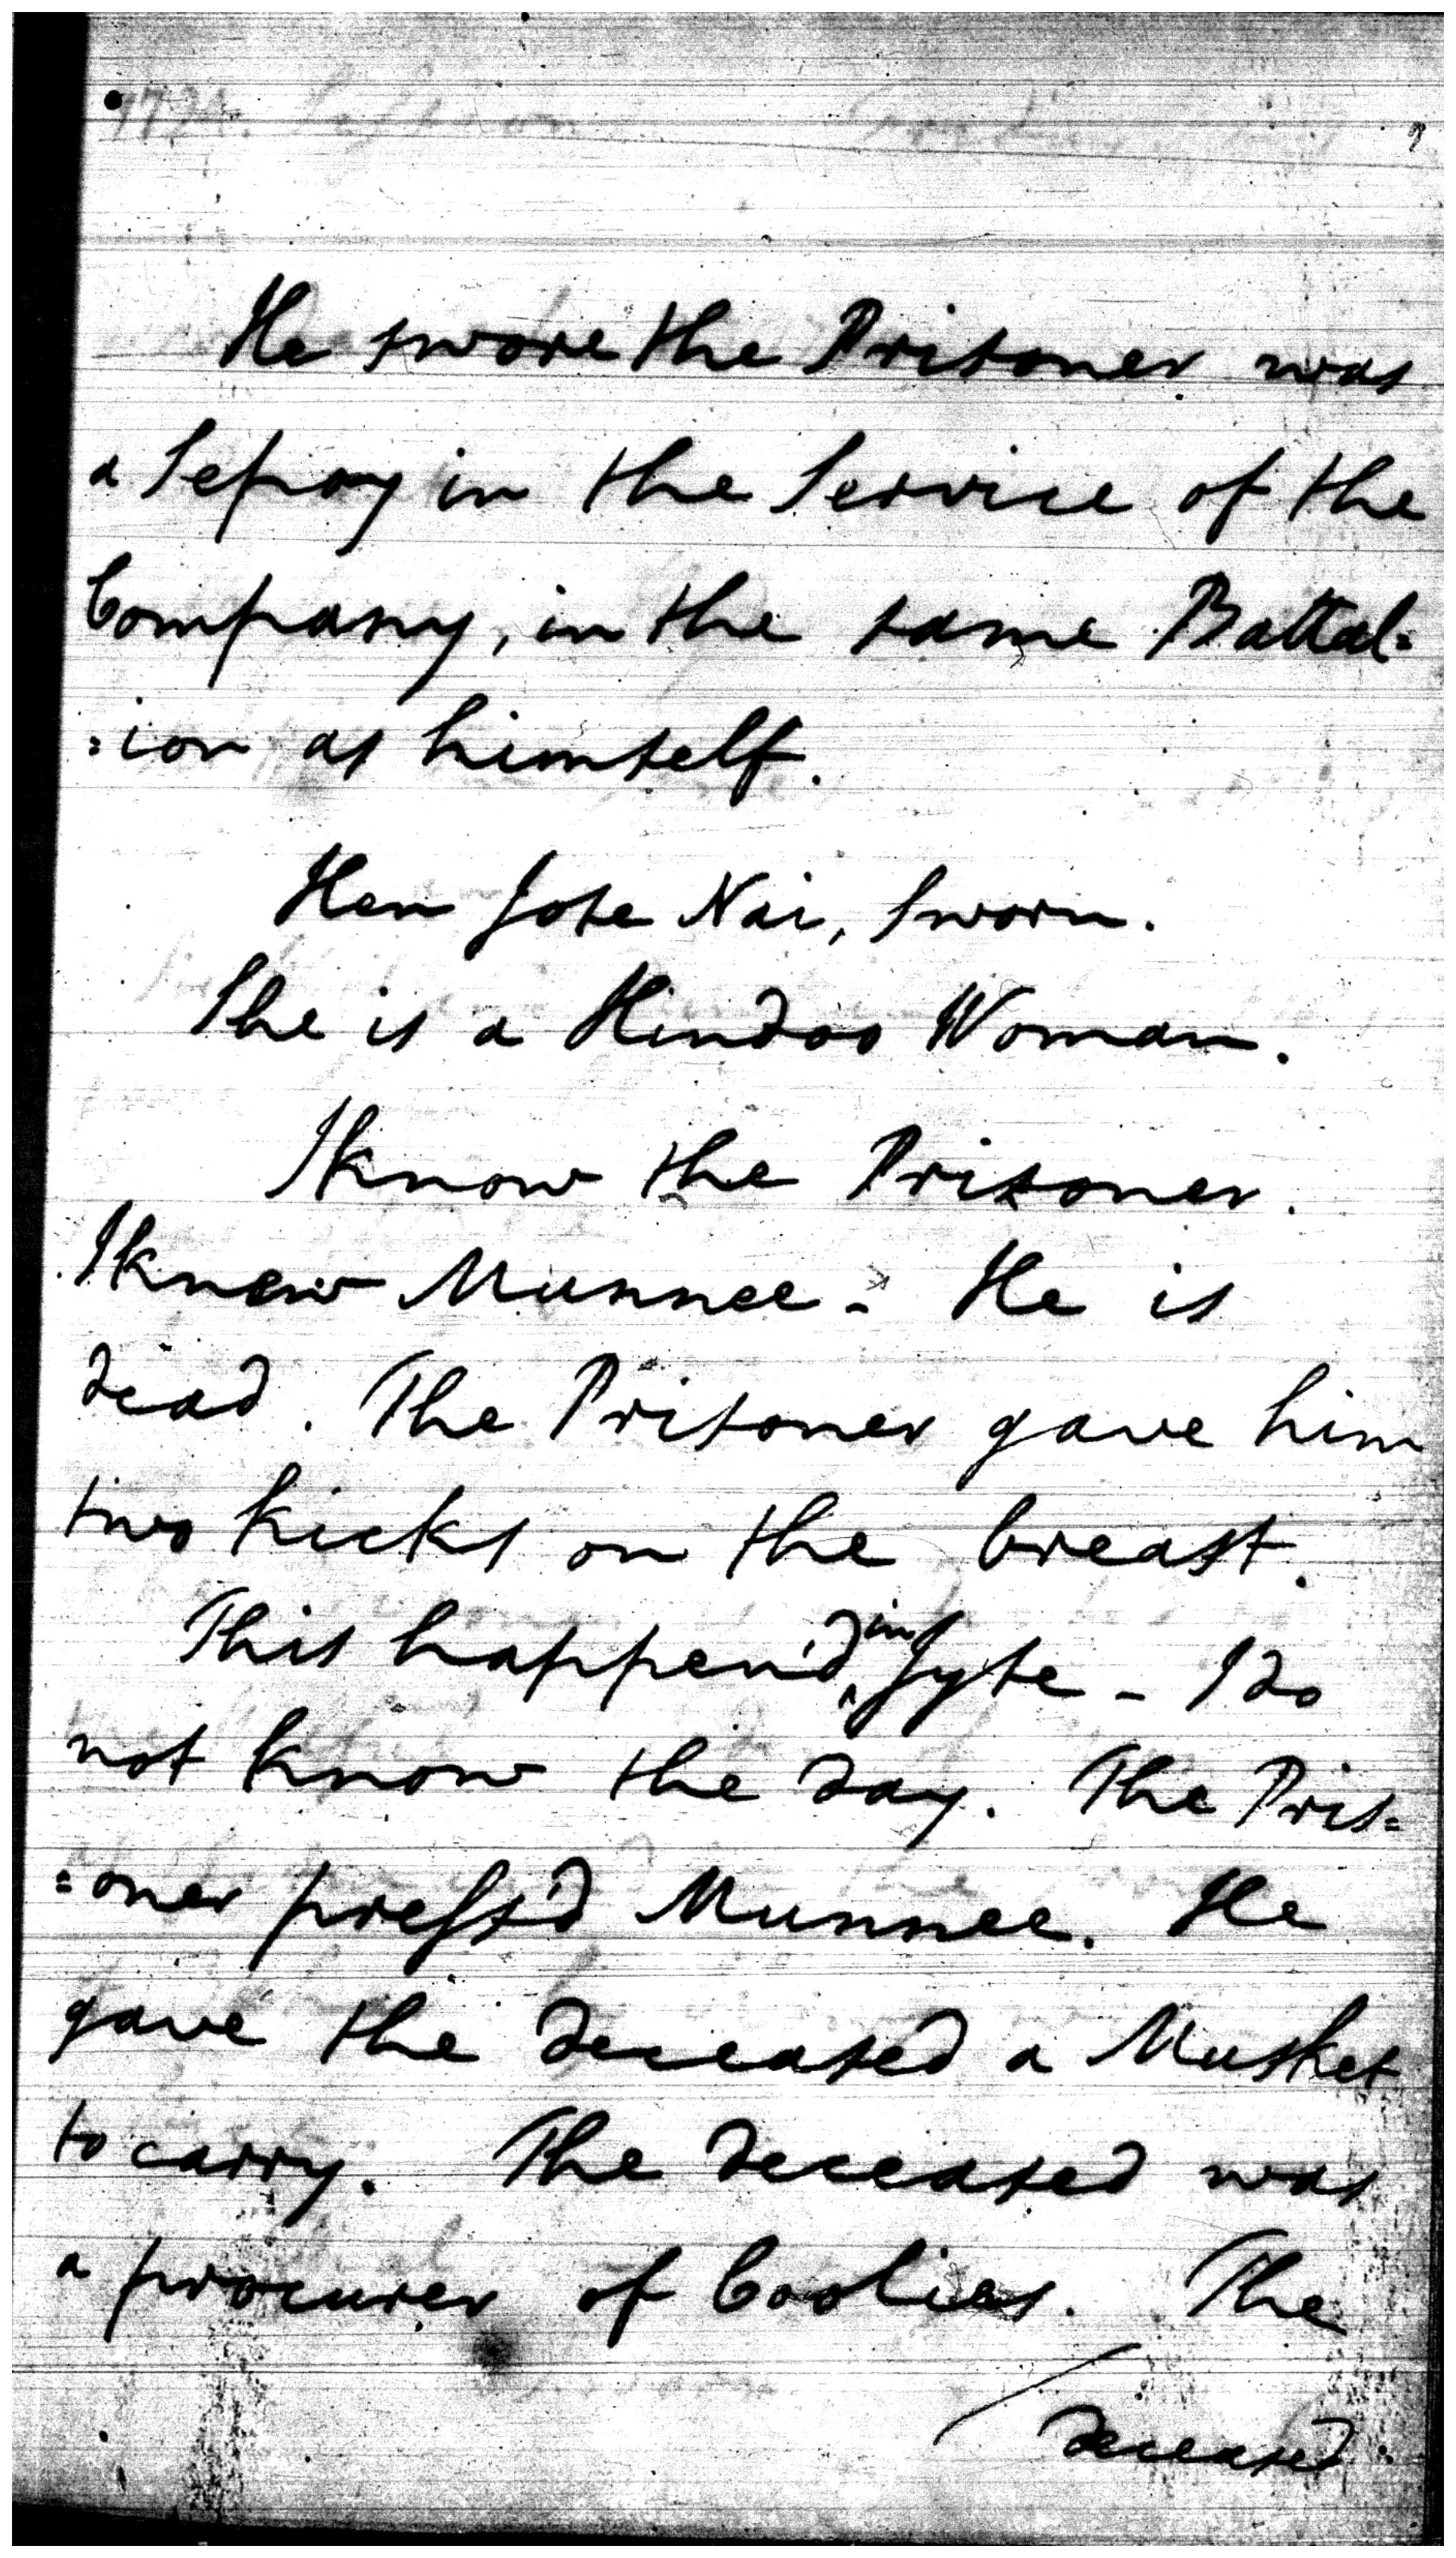 He swore the Prisoner was
a Sepoy in the Service of the
Company, in the same Battal=
=ion as himself.
Hem Jose Nai, Sworn.
She is a Hindoo Woman.
I know the Prisoner.
I knew Munnee - He is
dead. The Prisoner gave him
two kicks on the breast.
This happen'd in Jyte - I do
not know the day. The Pris=
=oner press'd Munnee. He
gave the deceased a Musket
to carry. The deceased was
a procurer of Coolies. The
deceased